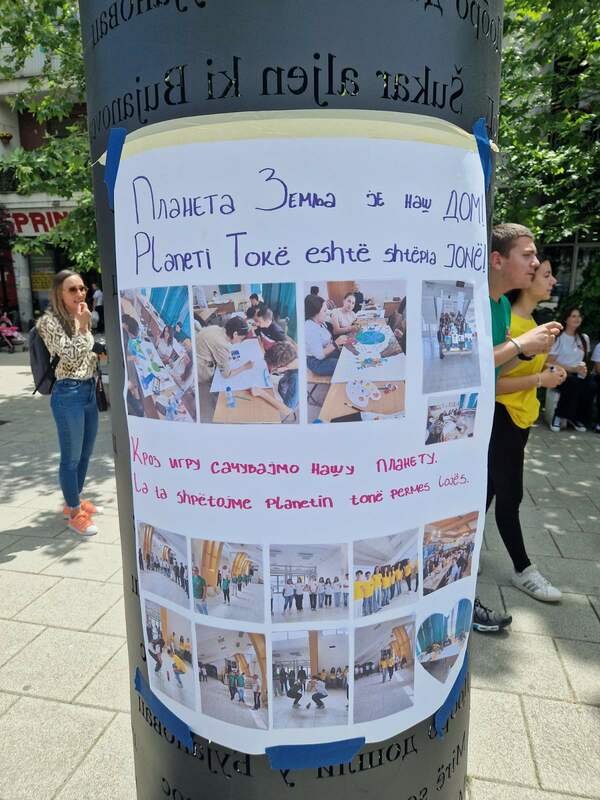 Šukar aljen ki Bujanov
SPRIN
Планета Земља је наш ДОМ!
Planeti Tokë eshtë shtëpia JONË!
Кроз игру сачувајмо нашу планету.
La ta shpëtojme Planetin tonë permes lojës.
дошли у Бујановац
Mirë